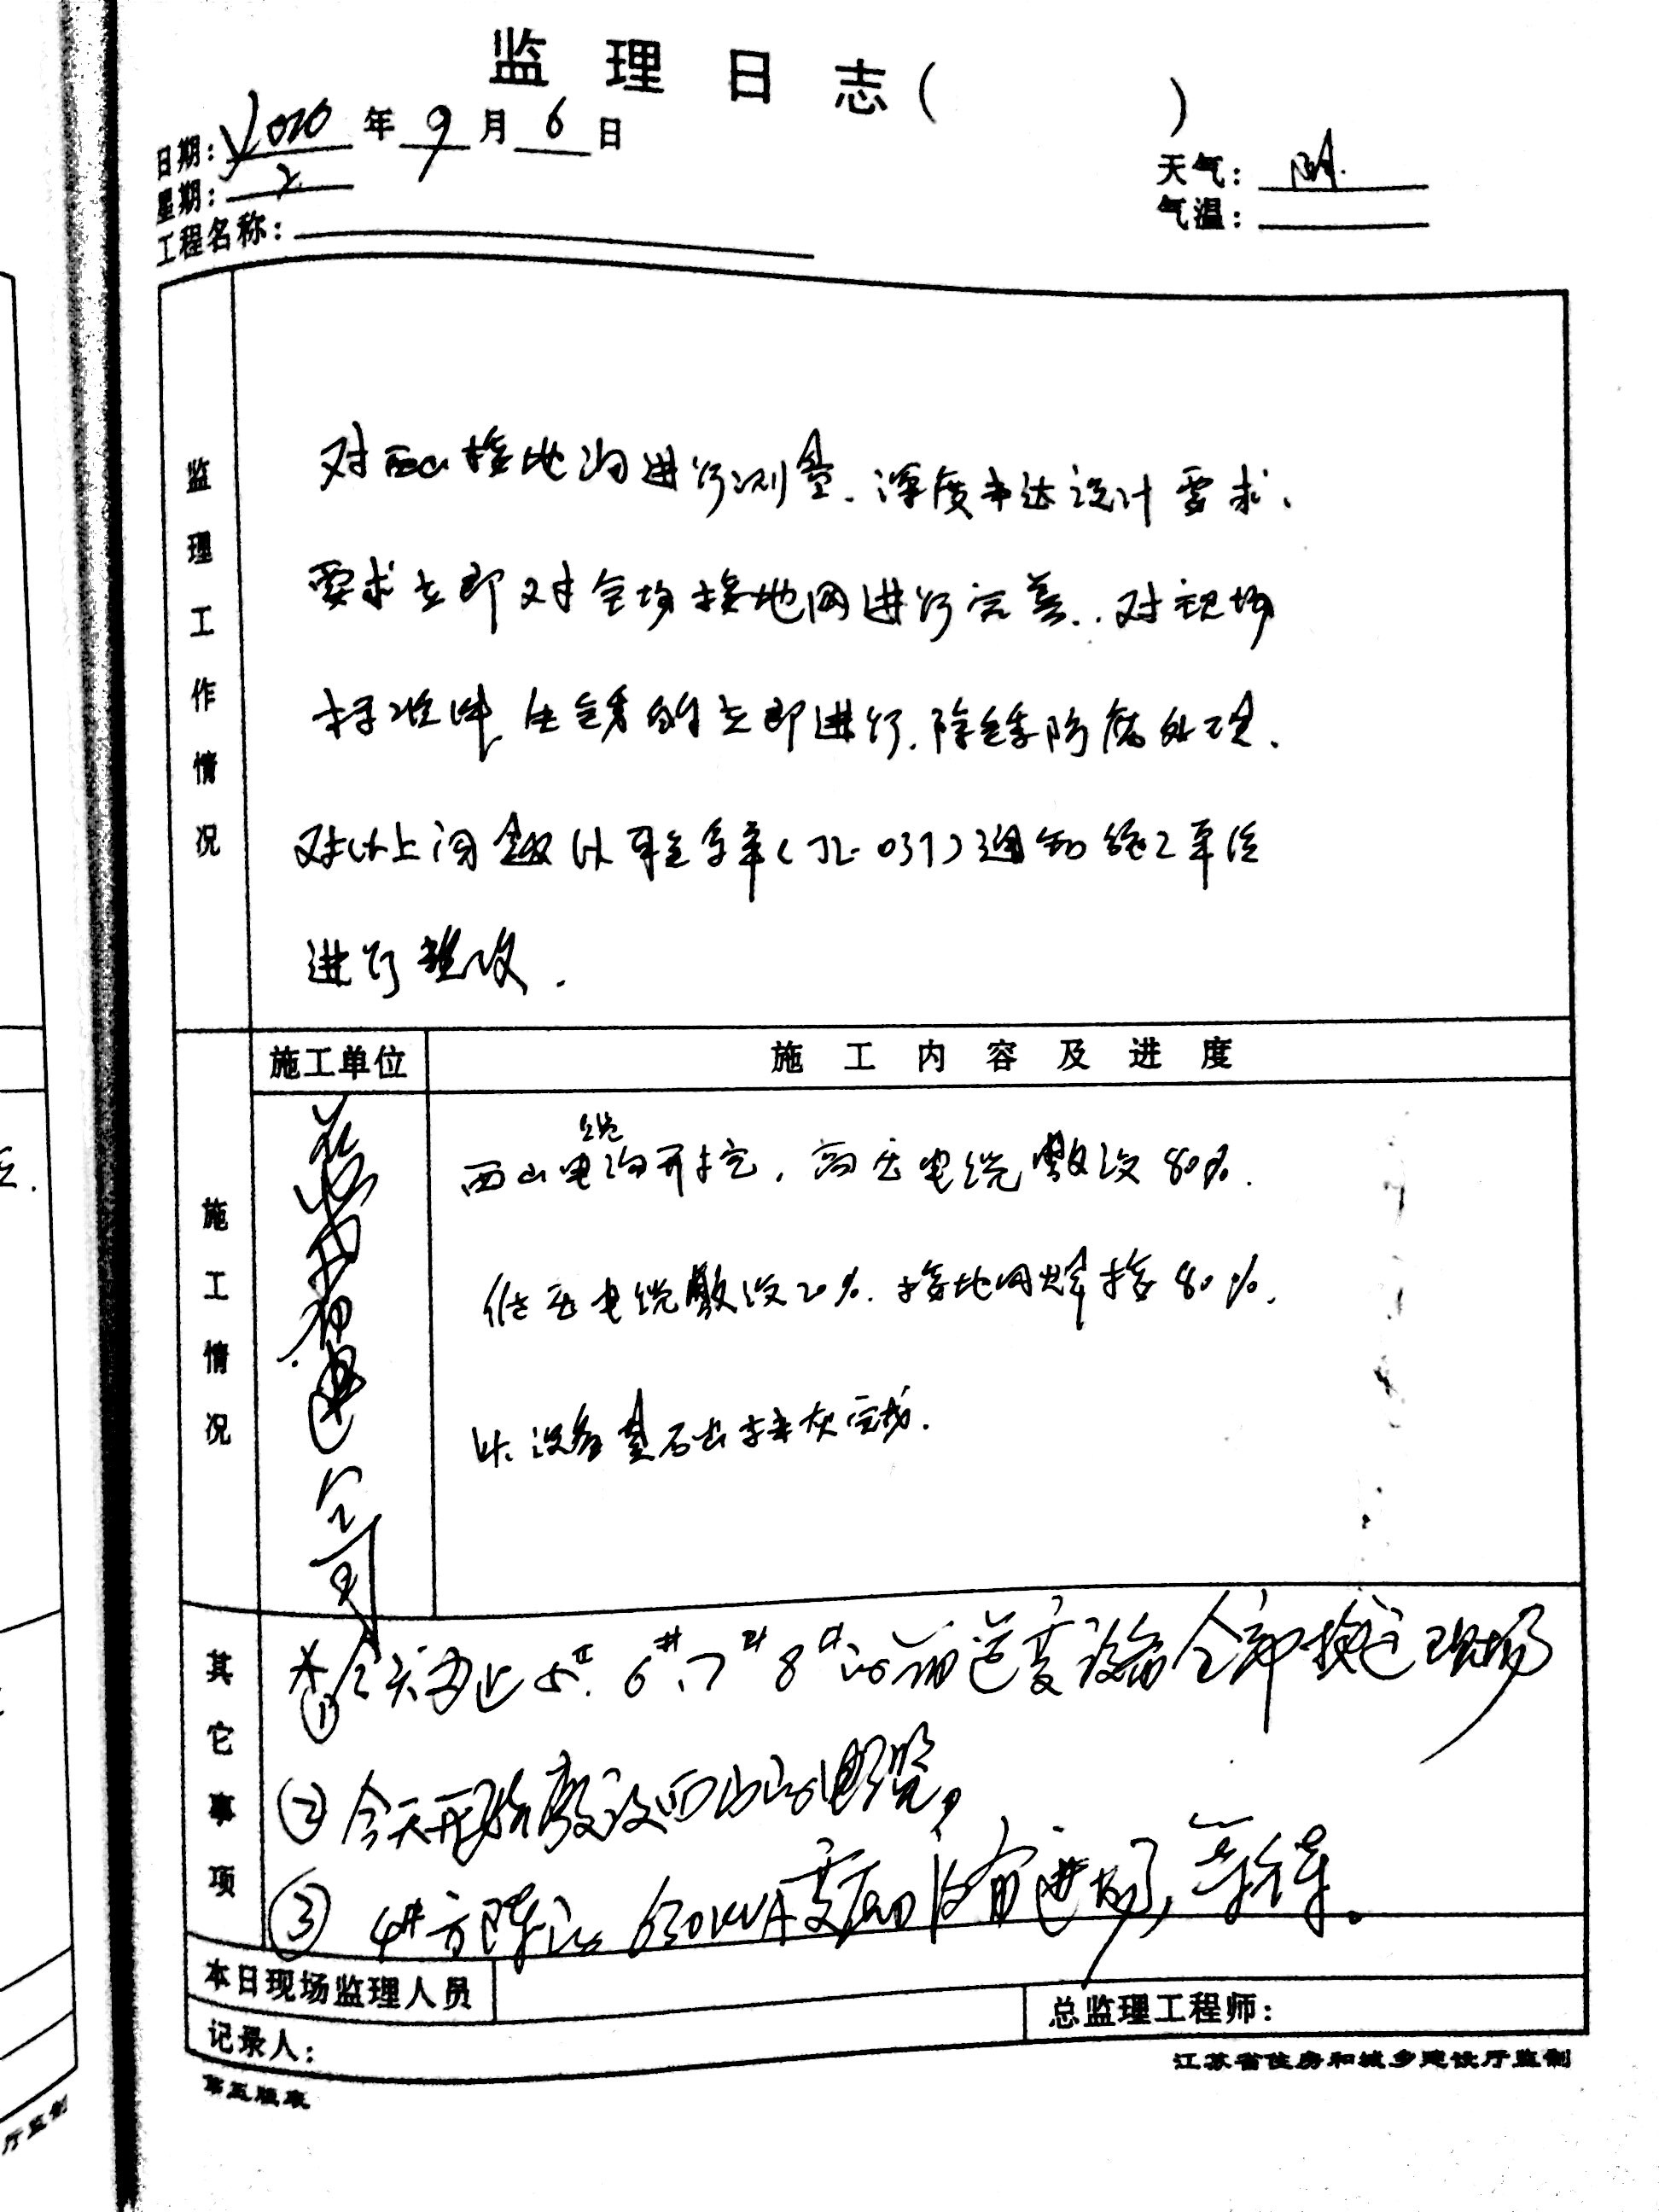 监理日志( )
日期: 2020 年 9 月 6 日
星期: 2
天气: 阴.
气温:
工程名称:
监理工作情况
对西山接地沟进行测量.深度未达设计要求.
要求立即对全场接地网进行完善..对现场
焊接件生锈的立即进行.除锈防腐处理.
对以上问题以联系单(JL-037)通知施工单位
进行整改.
施工单位
施工内容及进度
施工情况
电 公司
西山电缆沟开挖,高压电缆敷设80%.
低压电缆敷设20%.接地网焊接80%.
4#.设备基础抹灰完成.
其它事项
①今天为止5#.6#.7#8#的箱逆变设备全部搬运现场
②今天开始敷设西山的电缆。
③4#方阵的630KVA变压没有进场,等待。
本日现场监理人员
总监理工程师:
记录人:
江苏省住房和城乡建设厅监制
第五版表
厅监制